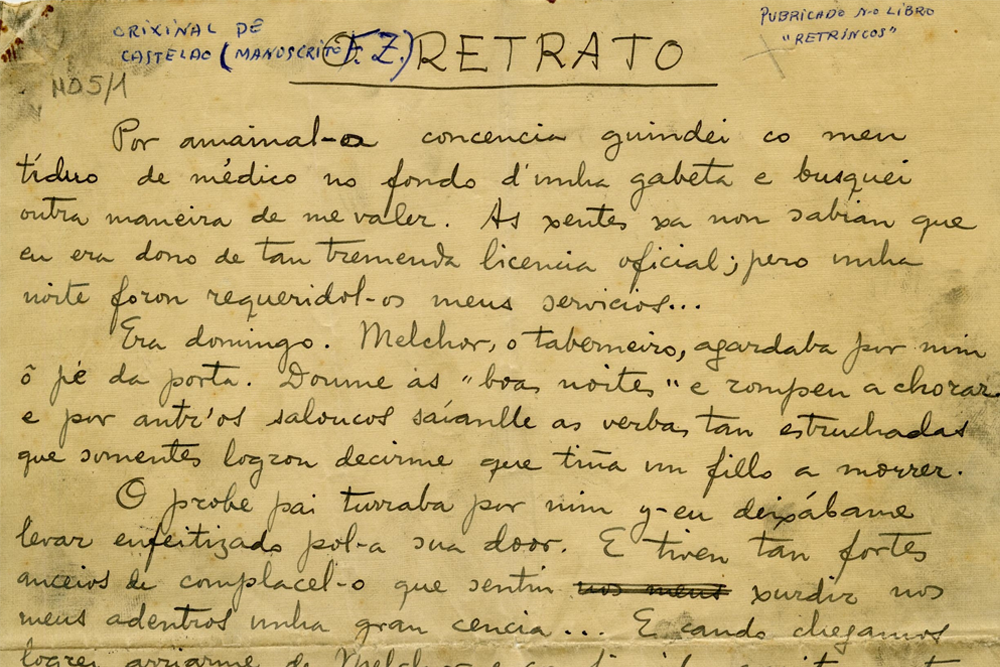 ORIXINAL DE
CASTELAO (MANUSCRITO F. Z.)
PUBRICADO NO LIBRO
"RETRINCOS"
O RETRATO
MD5/1
Por amainal-a concencia guindei co meu
título de médico no fondo d'unha gabeta e busquei
outra maneira de me valer. As xentes xa non sabían que
eu era dono de tan tremenda licencia oficial; pero unha
noite foron requeridol-os meus servicios...
Era domingo. Melchor, o taberneiro, agardaba por min
ô pé da porta. Doume as "boas noites" e rompeu a chorar
e por antr'os saloucos saíanlle as verbas tan estruchadas
que somentes logrou decirme que tiña un fillo a morrer.
O probe pai turraba por min y-eu deixábame
levar enfeitizado pol-a sua door. E tiven tan fortes
anceios de complacel-o que sentin nos meus xurdir nos
meus adentros unha gran cencia... E cando chegamos
logrei de Melchor e